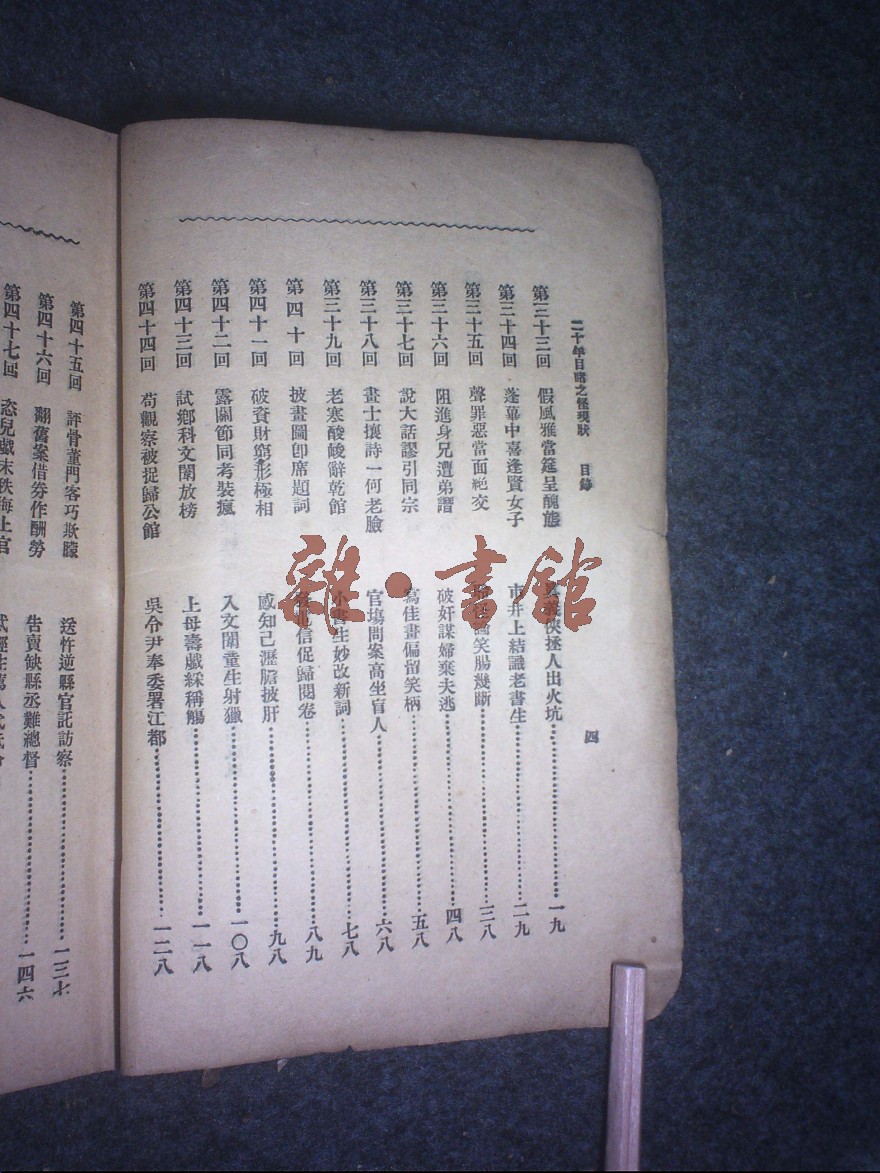 二十年目睹之怪現狀 目錄 四
第三十三回 假風雅當筵呈醜態 俠拯人出火坑 一九
第三十四回 蓬蓽中喜逢賢女子 市井上結識老書生 二九
第三十五回 聲罪惡當面絕交 笑腸幾斷 三八
第三十六回 阻進身兄遭弟譖 破奸謀婦棄夫逃 四八
第三十七回 說大話謬引同宗 寫佳畫偏留笑柄 五八
第三十八回 畫士攘詩一何老臉 官場問案高坐盲人 六八
第三十九回 老寒酸峻辭乾館 小書生妙改新詞 七八
第四十回 披畫圖卽席題詞 信促歸閱卷 八九
第四十一回 破資財窮形極相 感知己瀝膽披肝 九八
第四十二回 露關節同考裝瘋 入文闈童生射獵 一〇八
第四十三回 試鄉科文闈放榜 上母壽戲綵稱觴 一一八
第四十四回 苟觀察被捉歸公館 吳令尹奉委署江都 一二八
第四十五回 評骨董門客巧欺矇 送忤逆縣官託訪察 一三七
第四十六回 翻舊案借券作酬勞 告賣缺縣丞難總督 一四六
第四十七回 恣兒戲末秩侮上官
雜·書館